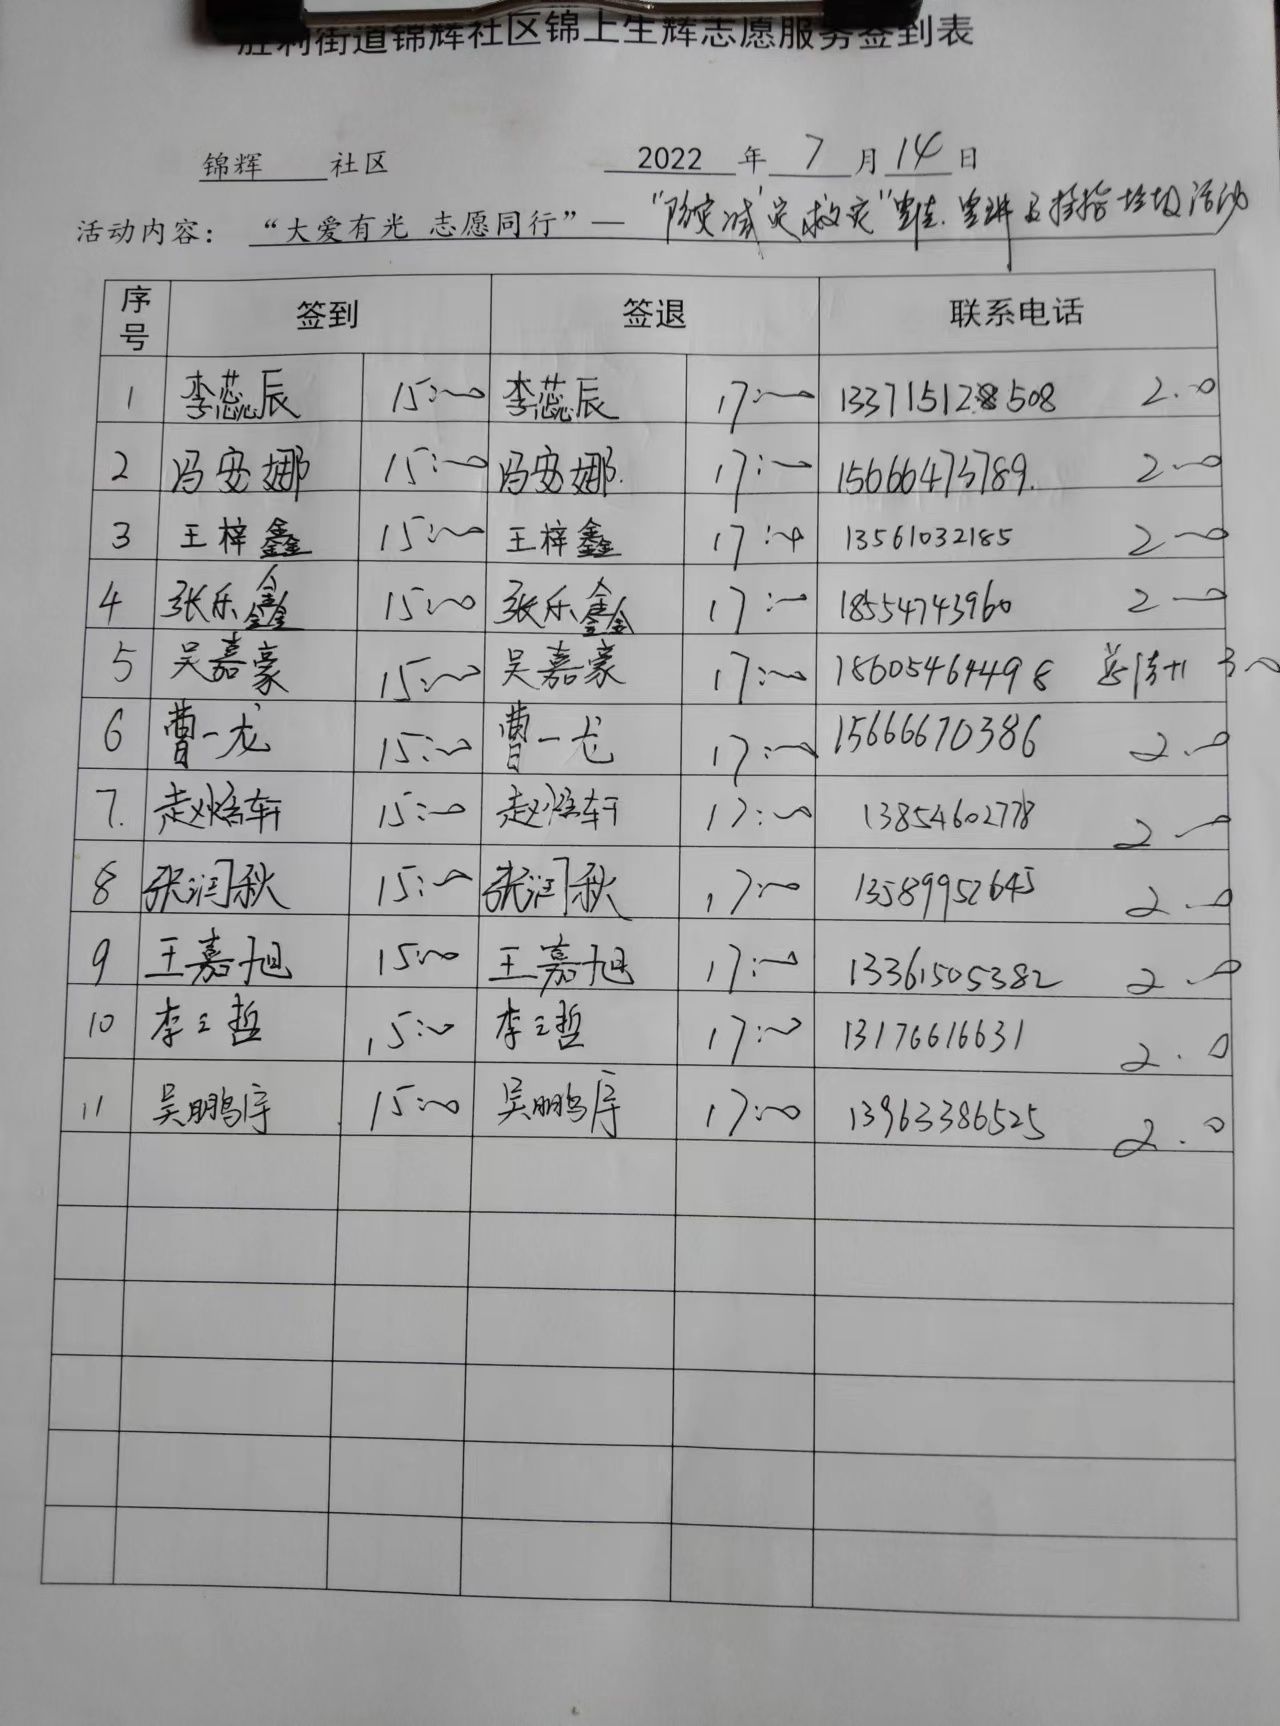 胜利街道锦辉社区锦上生辉志愿服务签到表
锦辉 社区 2022 年 7 月 14 日
活动内容： “大爱有光 志愿同行”— “防灾减灾救灾” 及 垃圾活动
序号 签到 签退 联系电话
1 李蕊辰 15:00 李蕊辰 17:00 133715128508 2.0
2 冯安娜 15:00 冯安娜. 17:00 15666475789. 2.0
3 王梓鑫 15:00 王梓鑫 17:00 13561032185 2.0
4 张乐鑫 15:00 张乐鑫 17:00 18554743960 2.0
5 吴嘉豪 15:00 吴嘉豪 17:00 18605464498 3.0
6 曹一龙 15:00 曹一龙 17:00 15666670386 2.0
7. 赵熠轩 15:00 赵熠轩 17:00 13854602778 2.0
8 张润秋 15:00 张润秋 17:00 13589952645 2.0
9 王嘉旭 15:00 王嘉旭 17:00 13361505382 2.0
10 李之哲 15:00 李之哲 17:00 13176616631 2.0
11 吴鹏宇 15:00 吴鹏宇 17:00 13963386525 2.0